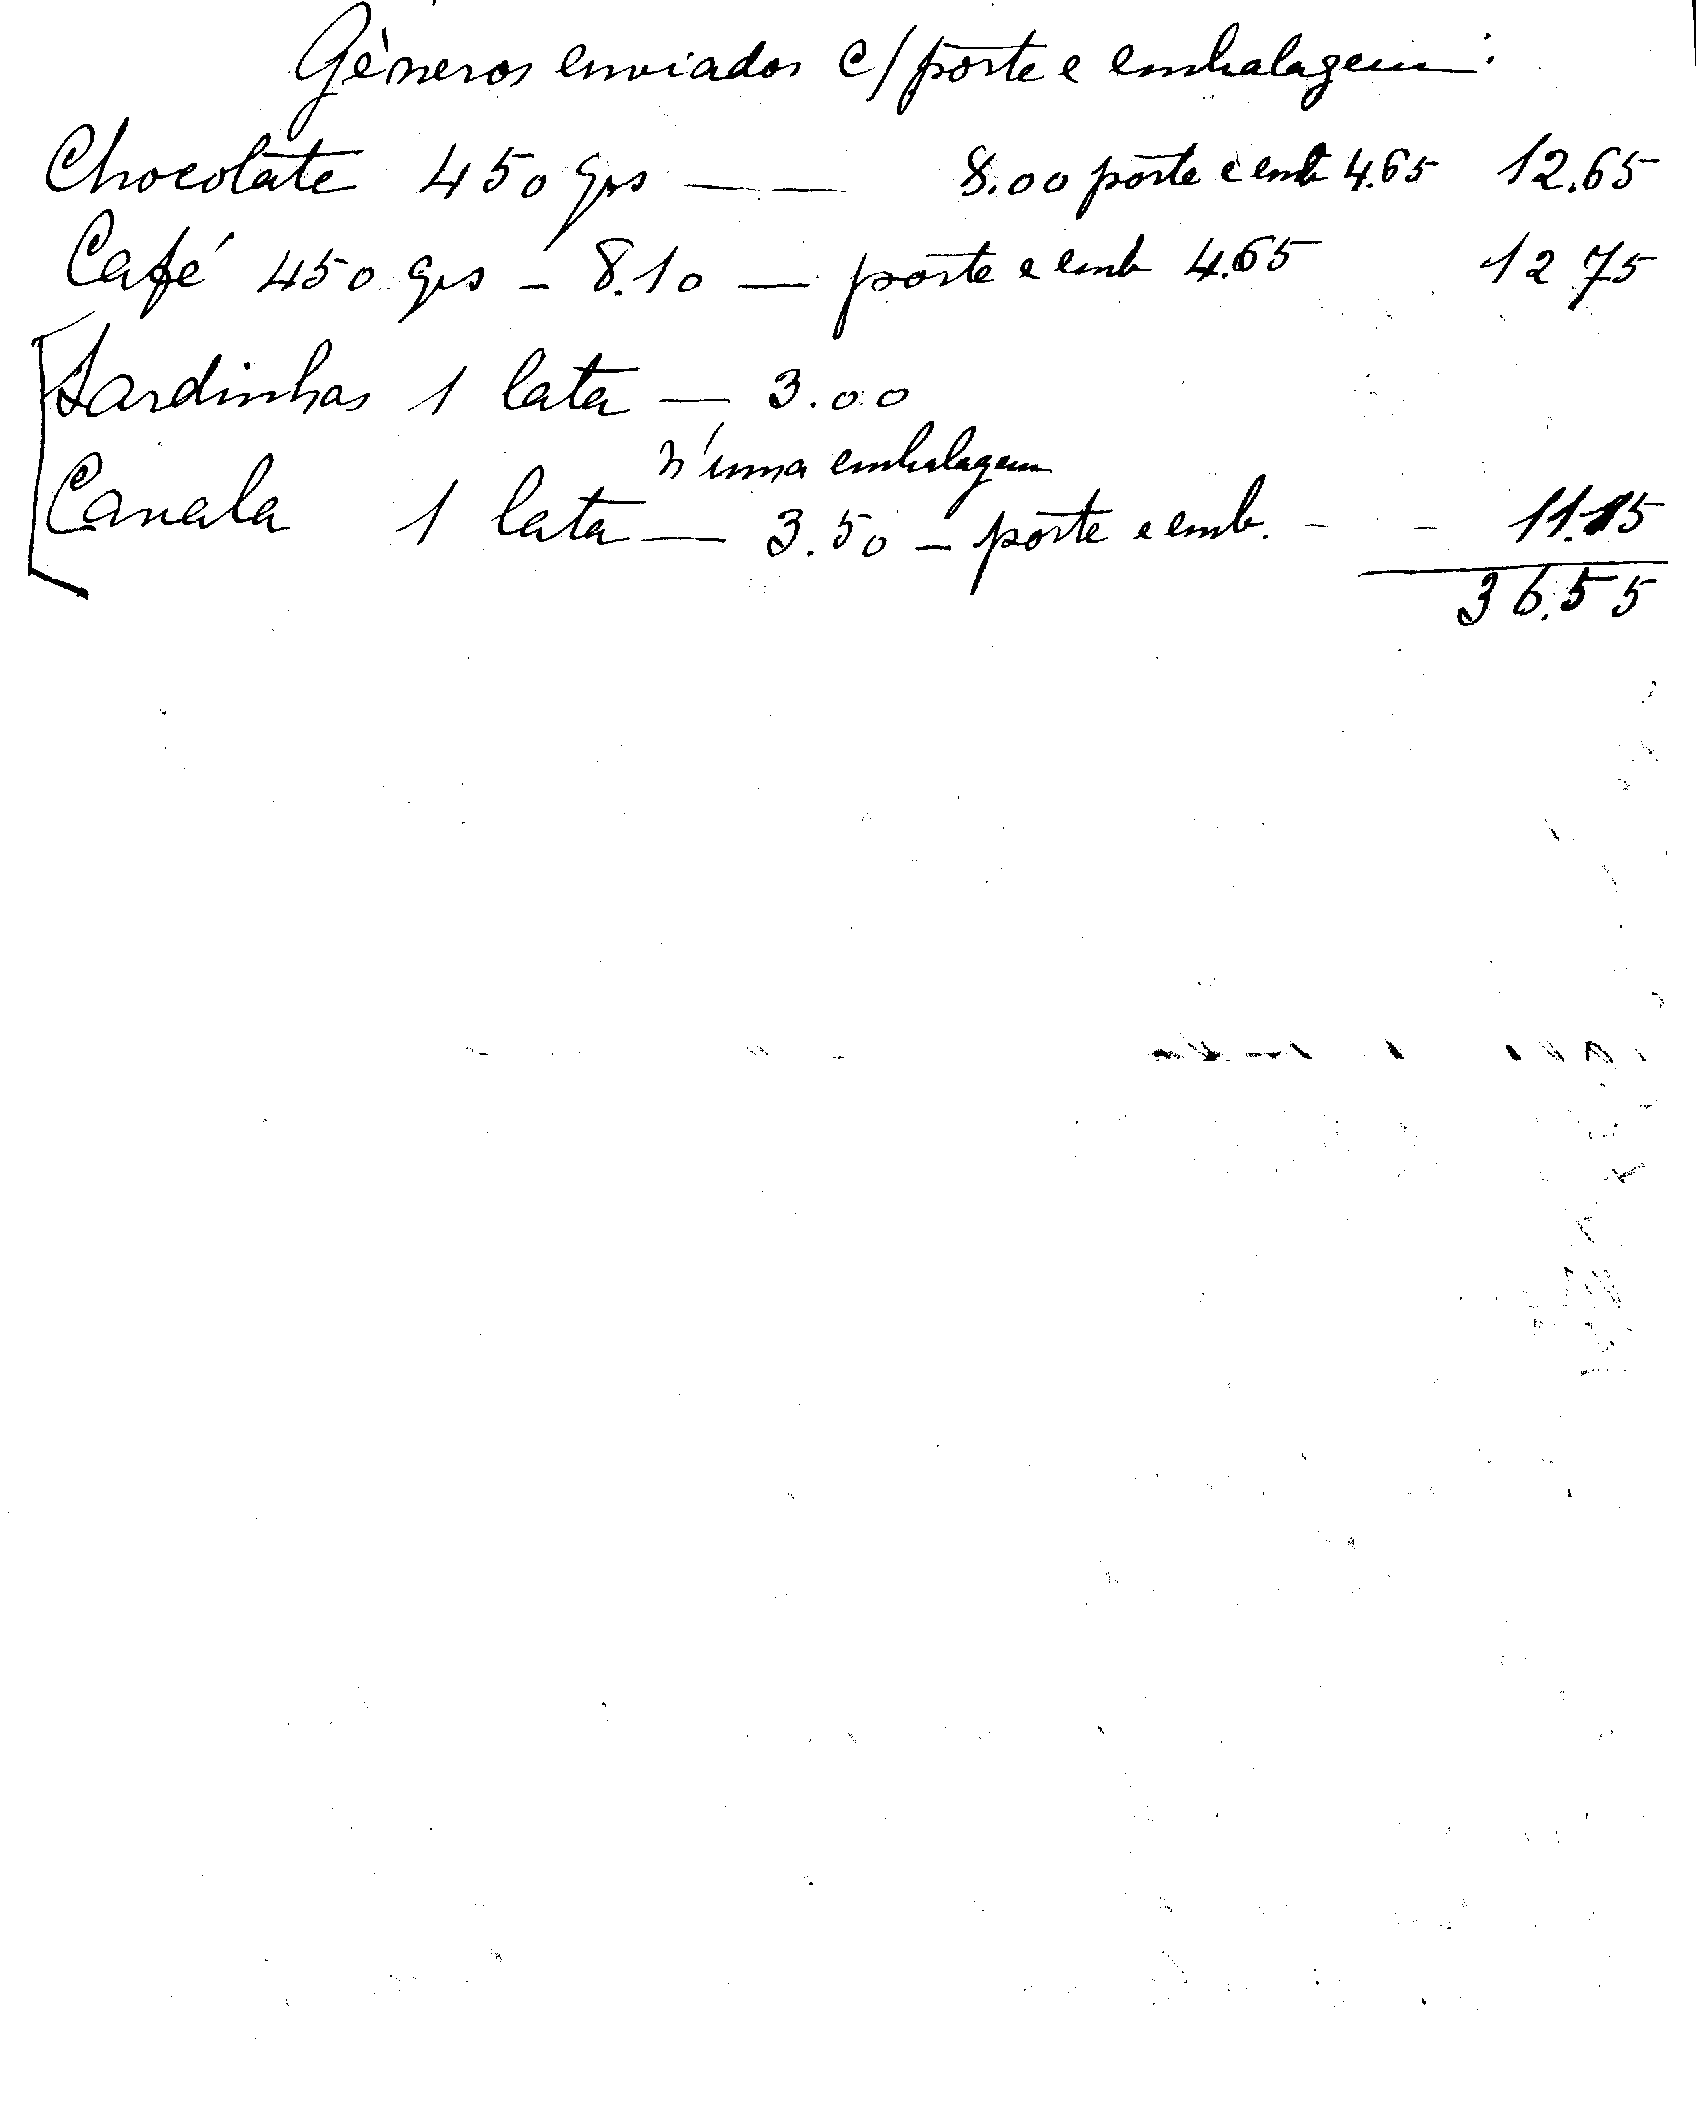 Gèneros enviados c/ porte e embalagem:
Chocolate 450 grs — — 8.00 porte e emb 4.65 12.65
Café 450 grs - 8.10 — porte e emb 4.65 12 75
Sardinhas 1 lata — 3.00
n'uma embalagem
Cavala 1 lata — 3.50 - porte e emb. - - 11.15
36.55